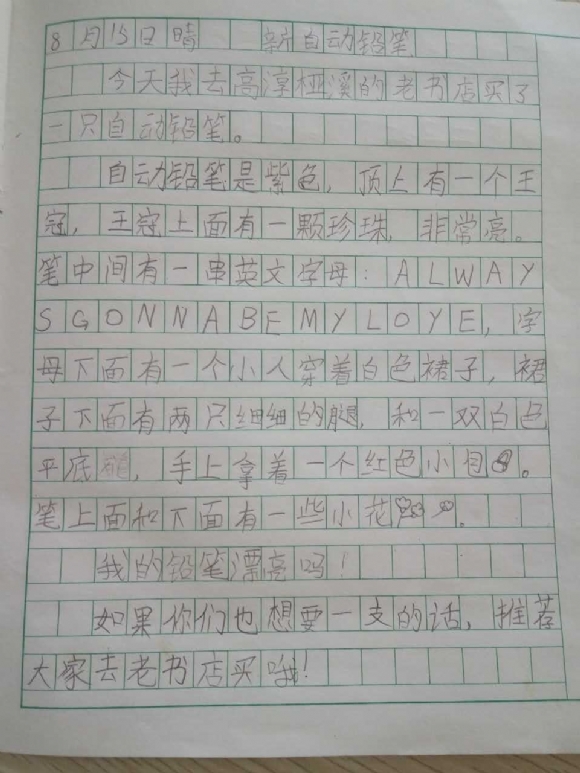 8月15日晴 新自动铅笔
今天我去高淳桠溪的老书店买了
一只自动铅笔。
自动铅笔是紫色，顶上有一个王
冠，王冠上面有一颗珍珠，非常亮。
笔中间有一串英文字母：ALWAY
SGONNABEMYLOYE，字
母下面有一个小人穿着白色裙子，裙
子下面有两只细细的腿，和一双白色
平底，手上拿着一个红色小包。
笔上面和下面有一些小花。
我的铅笔漂亮吗！
如果你们也想要一支的话，推荐
大家去老书店买哦！